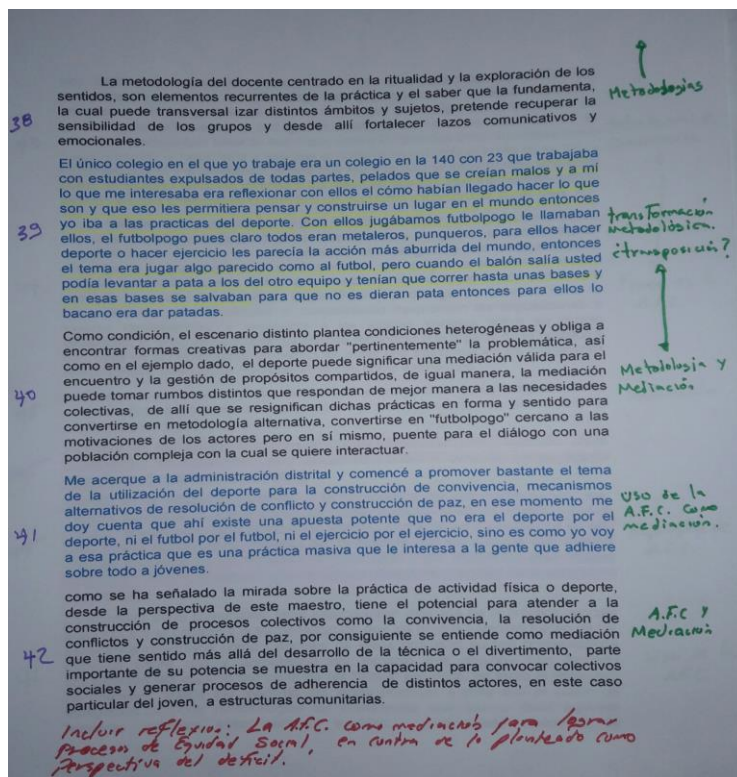 La metodología del docente centrado en la ritualidad y la exploración de los
sentidos, son elementos recurrentes de la práctica y el saber que la fundamenta,
la cual puede transversal izar distintos ámbitos y sujetos, pretende recuperar la
sensibilidad de los grupos y desde allí fortalecer lazos comunicativos y
emocionales.
Metodologías
38
El único colegio en el que yo trabaje era un colegio en la 140 con 23 que trabajaba
con estudiantes expulsados de todas partes, pelados que se creían malos y a mí
lo que me interesaba era reflexionar con ellos el cómo habían llegado hacer lo que
son y que eso les permitiera pensar y construirse un lugar en el mundo entonces
yo iba a las practicas del deporte. Con ellos jugábamos futbolpogo le llamaban
ellos, el futbolpogo pues claro todos eran metaleros, punqueros, para ellos hacer
deporte o hacer ejercicio les parecía la acción más aburrida del mundo, entonces
el tema era jugar algo parecido como al futbol, pero cuando el balón salía usted
podía levantar a pata a los del otro equipo y tenían que correr hasta unas bases y
en esas bases se salvaban para que no es dieran pata entonces para ellos lo
bacano era dar patadas.
39
transformación
Metodológica.
¿transposición?
Como condición, el escenario distinto plantea condiciones heterogéneas y obliga a
encontrar formas creativas para abordar "pertinentemente" la problemática, así
como en el ejemplo dado, el deporte puede significar una mediación válida para el
encuentro y la gestión de propósitos compartidos, de igual manera, la mediación
puede tomar rumbos distintos que respondan de mejor manera a las necesidades
colectivas, de allí que se resignifican dichas prácticas en forma y sentido para
convertirse en metodología alternativa, convertirse en "futbolpogo" cercano a las
motivaciones de los actores pero en sí mismo, puente para el diálogo con una
población compleja con la cual se quiere interactuar.
40
Metodología y
Mediación
Me acerque a la administración distrital y comencé a promover bastante el tema
de la utilización del deporte para la construcción de convivencia, mecanismos
alternativos de resolución de conflicto y construcción de paz, en ese momento me
doy cuenta que ahí existe una apuesta potente que no era el deporte por el
deporte, ni el futbol por el futbol, ni el ejercicio por el ejercicio, sino es como yo voy
a esa práctica que es una práctica masiva que le interesa a la gente que adhiere
sobre todo a jóvenes.
41
Uso de la
A.F.C. como
mediación.
como se ha señalado la mirada sobre la práctica de actividad física o deporte,
desde la perspectiva de este maestro, tiene el potencial para atender a la
construcción de procesos colectivos como la convivencia, la resolución de
conflictos y construcción de paz, por consiguiente se entiende como mediación
que tiene sentido más allá del desarrollo de la técnica o el divertimento, parte
importante de su potencia se muestra en la capacidad para convocar colectivos
sociales y generar procesos de adherencia de distintos actores, en este caso
particular del joven, a estructuras comunitarias.
42
A.F.C y
Mediación
Incluir reflexion: La A.F.C. como mediación para lograr
procesos de Equidad Social, en contra de lo planteado como
Perspectiva del deficit.